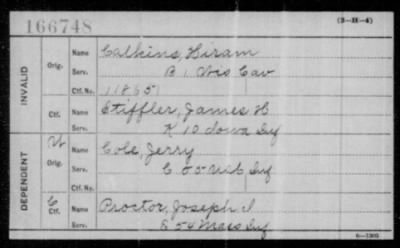 166748
(3-H-4)
INVALID
Orig.
Name Calkins, Hiram
Serv. B 1 Wis Cav
Ctf. No. 11865
Ctf.
Name Stiffler, James H
Serv. K 10 Iowa Inf
DEPENDENT
W
Orig.
Name Cole, Jerry
Serv. C 55 Inf
Ctf. No.
C
Ctf.
Name Proctor, Joseph
Serv. 54 Mass Inf